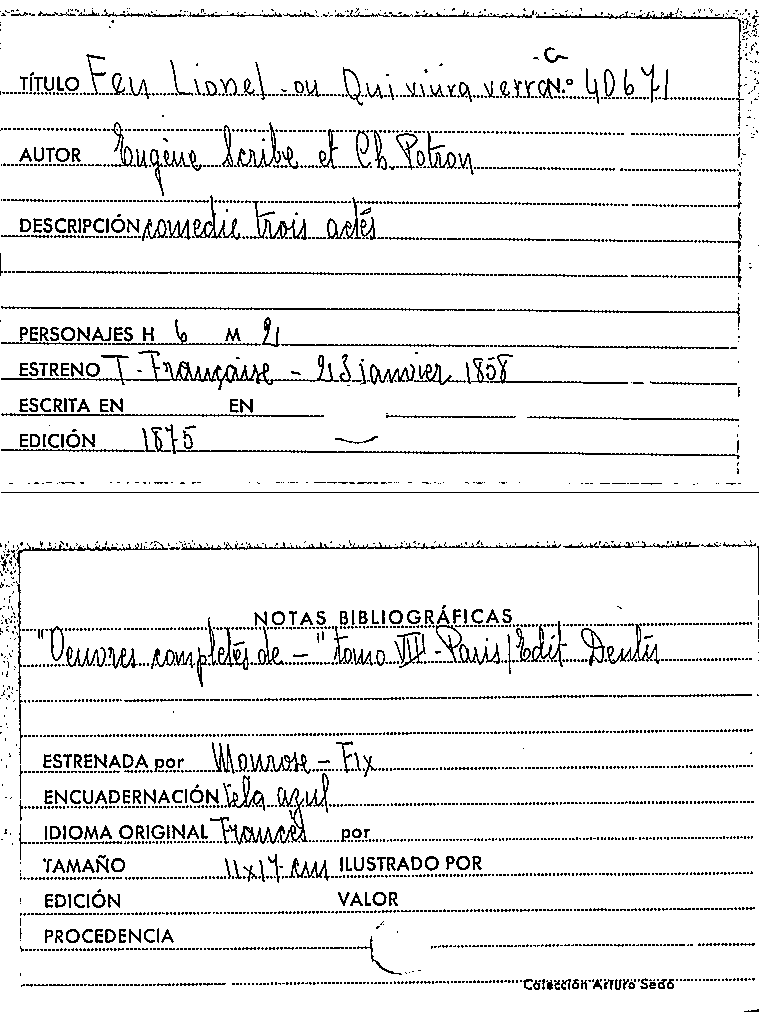 -G
TÍTULO Feu Lionel - ou Qui vivra verra N.º 40671
AUTOR Eugène Scribe et Ch. Potron
DESCRIPCIÓN comedie trois actes
PERSONAJES H 6 M 2
ESTRENO T. Française - 23 janvier 1858
ESCRITA EN EN
EDICIÓN 1875
NOTAS BIBLIOGRÁFICAS
"Oeuvres completés de -" tomo VIII - Paris/Edit Dentu
ESTRENADA por Monrose - Fix
ENCUADERNACIÓN tela azul
IDIOMA ORIGINAL Francés por
TAMAÑO 11x17 cm ILUSTRADO POR
EDICIÓN VALOR
PROCEDENCIA
Colección Arturo Sedó